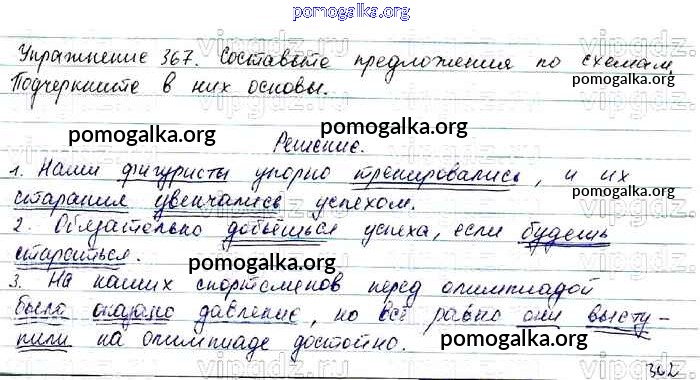 pomogalka.org
Упражнение 367. Составьте предложения по схемам.
Подчеркните в них основы.
pomogalka.org pomogalka.org
Решение.
1. Наши фигуристы упорно тренировались, и их
pomogalka.org
старания увенчались успехом.
2. Обязательно добьёшься успеха, если будешь
стараться.
pomogalka.org
3. На наших спортсменов перед олимпиадой
было оказано давление, но всё равно они высту-
pomogalka.org
пили на олимпиаде достойно.
302